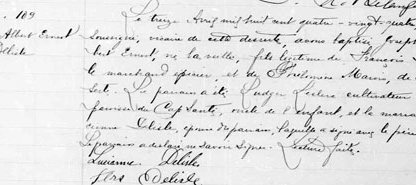 109
Albert Ernest
Delisle
Le treize Avril mil huit cent quatre-vingt-
soussigné, vicaire de cette desserte, avons baptisé Joseph
bert Ernest, né la veille, fils légitime de François
le marchand épicier, et de Philomène Marois, de
Le parrain a été Rudger Leclerc cultivateur
paroisse du Cap Santé, oncle de l'enfant, et la marrai
Delisle, épouse du parrain laquelle a signé avec le père
Le parrain a déclaré ne savoir signer. Lecture faite.
Lucienne Delisle
Frs Delisle